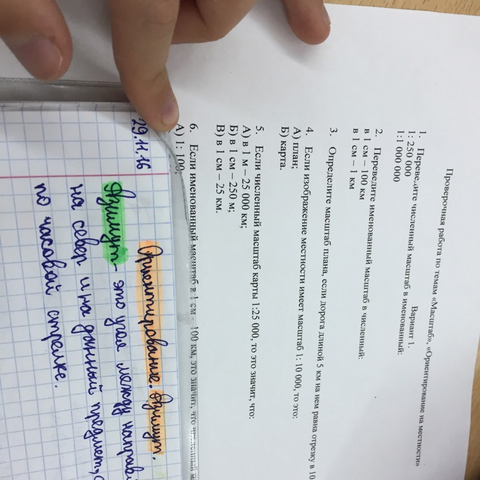 Проверочная работа по темам «Масштаб», «Ориентирование на местности»
Вариант 1.
1. Переведите численный масштаб в именованный:
1: 250 000
1:1 000 000
2. Переведите именованный масштаб в численный:
в 1 см – 100 км
в 1 см – 1 км
3. Определите масштаб плана, если дорога длиной 5 км на нем равна отрезку в 10
4. Если изображение местности имеет масштаб 1: 10 000, то это:
А) план;
Б) карта.
5. Если численный масштаб карты 1:25 000, то это значит, что:
А) в 1 м – 25 000 км;
Б) в 1 см – 250 м;
В) в 1 см – 25 км.
6. Если именованный масштаб в 1 см – 100 км, это значит, что численный
А) 1: 100;
29.11.16
Ориентирование. Азимут.
Азимут - это угол между направ
на север и на данный предмет,
по часовой стрелке.